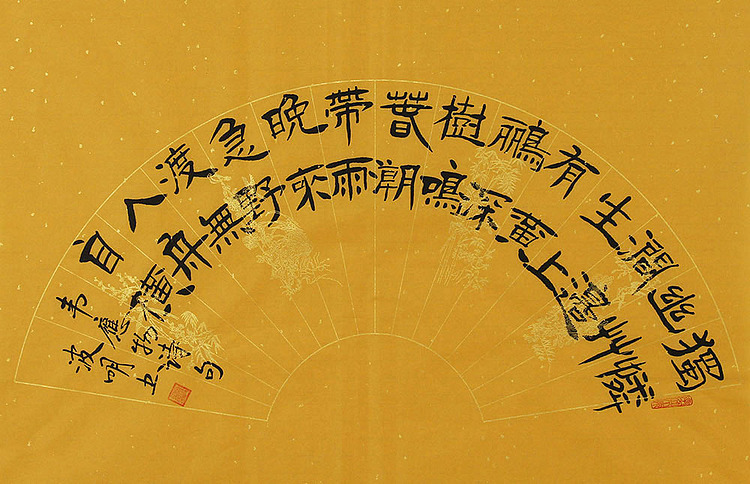 獨憐
幽艸
澗邊
生上
有黃
鸝深
樹鳴
萅潮
帶雨
晚來
急野
渡無
人舟
自橫
韦應物詩句
波明书